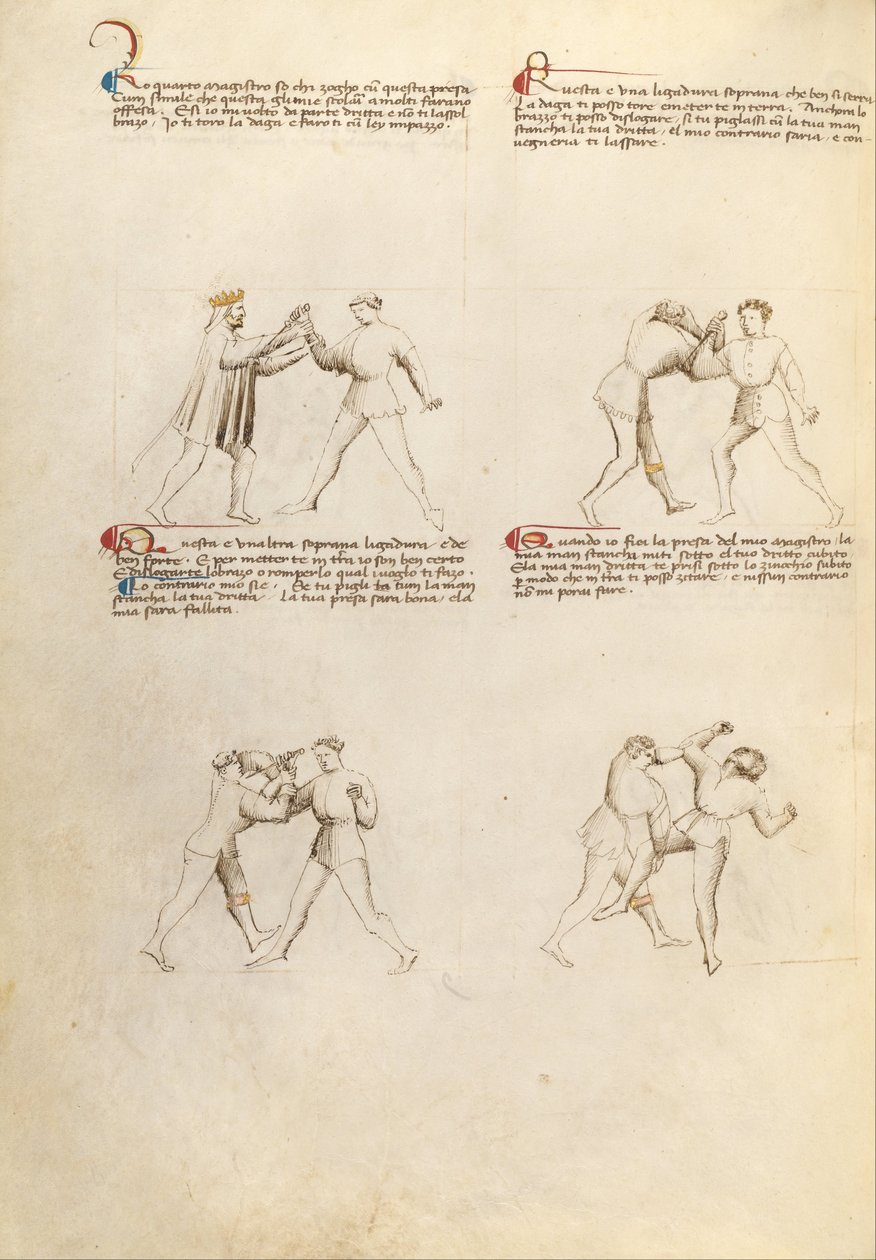 Lo quarto magistro so chi zogho cū questa presa
Cum simile che questa gli miei scolari a molti farano
offesa. E si io mi volto da parte dritta e nō ti lassol
brazo, Io ti toro la daga e faro ti cū ley impazzo.
Questa e una ligadura soprana che ben si serra
La daga ti posso tore e meter te in terra. Anchora lo
brazzo ti posso dislogare, si tu piglassi cū la tua man
stancha la tua dritta, el mio contrario saria, e con-
vegneria ti lassare.
Questa e unaltra soprana ligadura e de
ben forte. E per metter te in tr̄a io son ben certo
E dislogarte lobrazo o romperlo qual i voglio ti fazo.
Lo contrario mio si e, Se tu pigli ta cum la man
stancha la tua dritta. La tua presa sara bona, e la
mia sara fallita.
Quando io fici la presa del mio magistro, la
mia man stancha miti sotto el tuo dritto cubito
E la mia man dritta te prisi sotto lo zinochio subito
p modo che in tr̄a ti posso zitare, e nissun contrario
nō mi porai fare.